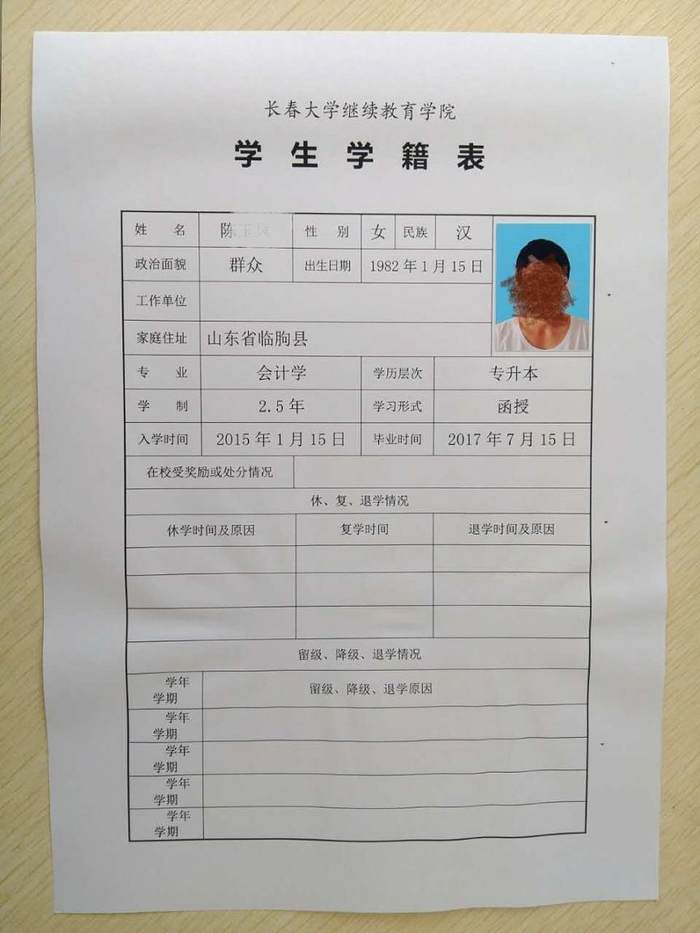 长春大学继续教育学院
学生学籍表
姓 名 陈 性 别 女 民族 汉
政治面貌 群众 出生日期 1982年1月15日
工作单位
家庭住址 山东省临朐县
专 业 会计学 学历层次 专升本
学 制 2.5年 学习形式 函授
入学时间 2015年1月15日 毕业时间 2017年7月15日
在校受奖励或处分情况
休、复、退学情况
休学时间及原因 复学时间 退学时间及原因
留级、降级、退学情况
学年
学期 留级、降级、退学原因
学年
学期
学年
学期
学年
学期
学年
学期